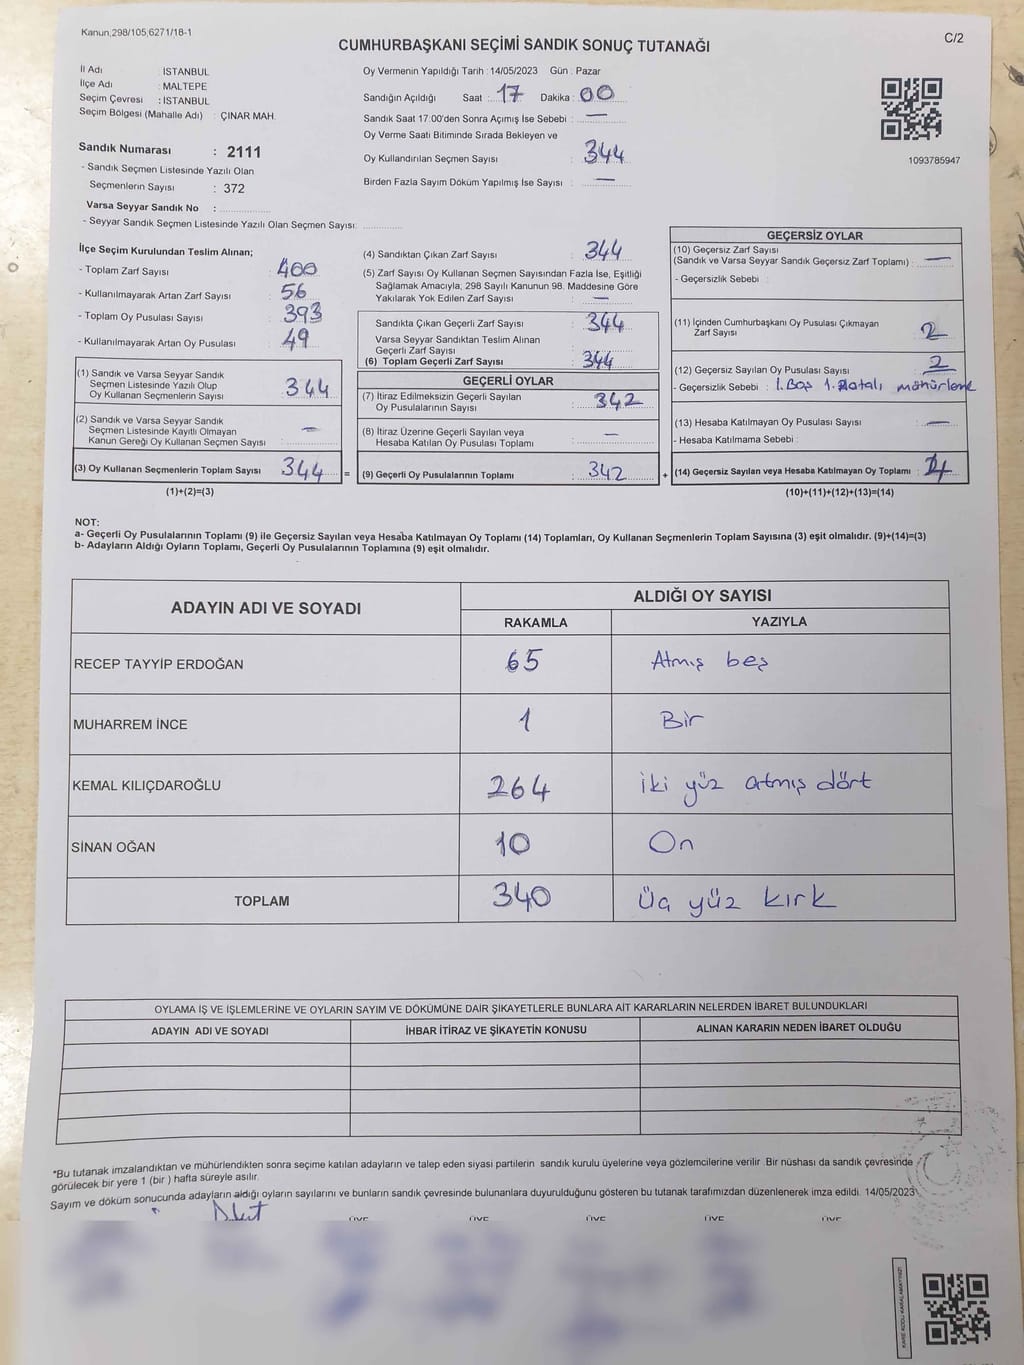 Kanun,298/105,6271/18-1
C/2
CUMHURBAŞKANI SEÇİMİ SANDIK SONUÇ TUTANAĞI
İl Adı : İSTANBUL
İlçe Adı : MALTEPE
Seçim Çevresi : İSTANBUL
Seçim Bölgesi (Mahalle Adı) : ÇINAR MAH.
Sandık Numarası : 2111
- Sandık Seçmen Listesinde Yazılı Olan
Seçmenlerin Sayısı : 372
Varsa Seyyar Sandık No :
- Seyyar Sandık Seçmen Listesinde Yazılı Olan Seçmen Sayısı:
Oy Vermenin Yapıldığı Tarih : 14/05/2023 Gün : Pazar
Sandığın Açıldığı Saat : 17 Dakika : 00
Sandık Saat 17:00'den Sonra Açımış İse Sebebi : —
Oy Verme Saati Bitiminde Sırada Bekleyen ve
Oy Kullandırılan Seçmen Sayısı : 344
Birden Fazla Sayım Döküm Yapılmış İse Sayısı : —
1093785947
İlçe Seçim Kurulundan Teslim Alınan;
- Toplam Zarf Sayısı : 400
- Kullanılmayarak Artan Zarf Sayısı : 56
- Toplam Oy Pusulası Sayısı : 393
- Kullanılmayarak Artan Oy Pusulası : 49
(1) Sandık ve Varsa Seyyar Sandık
Seçmen Listesinde Yazılı Olup
Oy Kullanan Seçmenlerin Sayısı : 344
(2) Sandık ve Varsa Seyyar Sandık
Seçmen Listesinde Kayıtlı Olmayan
Kanun Gereği Oy Kullanan Seçmen Sayısı : —
(3) Oy Kullanan Seçmenlerin Toplam Sayısı : 344 =
(1)+(2)=(3)
(4) Sandıktan Çıkan Zarf Sayısı : 344
(5) Zarf Sayısı Oy Kullanan Seçmen Sayısından Fazla İse, Eşitliği
Sağlamak Amacıyla, 298 Sayılı Kanunun 98. Maddesine Göre
Yakılarak Yok Edilen Zarf Sayısı : —
Sandıkta Çıkan Geçerli Zarf Sayısı : 344
Varsa Seyyar Sandıktan Teslim Alınan
Geçerli Zarf Sayısı :
(6) Toplam Geçerli Zarf Sayısı : 344
GEÇERLİ OYLAR
(7) İtiraz Edilmeksizin Geçerli Sayılan
Oy Pusulalarının Sayısı : 342
(8) İtiraz Üzerine Geçerli Sayılan veya
Hesaba Katılan Oy Pusulası Toplamı : —
(9) Geçerli Oy Pusulalarının Toplamı : 342 +
GEÇERSİZ OYLAR
(10) Geçersiz Zarf Sayısı
(Sandık ve Varsa Seyyar Sandık Geçersiz Zarf Toplamı) : —
- Geçersizlik Sebebi :
(11) İçinden Cumhurbaşkanı Oy Pusulası Çıkmayan
Zarf Sayısı : 2
(12) Geçersiz Sayılan Oy Pusulası Sayısı : 2
- Geçersizlik Sebebi : 1. Boş 1. Hatalı mühürleme
(13) Hesaba Katılmayan Oy Pusulası Sayısı : —
- Hesaba Katılmama Sebebi :
(14) Geçersiz Sayılan veya Hesaba Katılmayan Oy Toplamı :
(10)+(11)+(12)+(13)=(14)
NOT:
a- Geçerli Oy Pusulalarının Toplamı (9) ile Geçersiz Sayılan veya Hesaba Katılmayan Oy Toplamı (14) Toplamları, Oy Kullanan Seçmenlerin Toplam Sayısına (3) eşit olmalıdır. (9)+(14)=(3)
b- Adayların Aldığı Oyların Toplamı, Geçerli Oy Pusulalarının Toplamına (9) eşit olmalıdır.
ADAYIN ADI VE SOYADI
ALDIĞI OY SAYISI
RAKAMLA YAZIYLA
RECEP TAYYİP ERDOĞAN 65 Atmış beş
MUHARREM İNCE 1 Bir
KEMAL KILIÇDAROĞLU 264 iki yüz atmış dört
SİNAN OĞAN 10 On
TOPLAM 340 Üç yüz kırk
OYLAMA İŞ VE İŞLEMLERİNE VE OYLARIN SAYIM VE DÖKÜMÜNE DAİR ŞİKAYETLERLE BUNLARA AİT KARARLARIN NELERDEN İBARET BULUNDUKLARI
ADAYIN ADI VE SOYADI İHBAR İTİRAZ VE ŞİKAYETİN KONUSU ALINAN KARARIN NEDEN İBARET OLDUĞU
*Bu tutanak imzalandıktan ve mühürlendikten sonra seçime katılan adayların ve talep eden siyasi partilerin sandık kurulu üyelerine veya gözlemcilerine verilir. Bir nüshası da sandık çevresinde
görülecek bir yere 1 (bir ) hafta süreyle asılır.
Sayım ve döküm sonucunda adayların aldığı oyların sayılarını ve bunların sandık çevresinde bulunanlara duyurulduğunu gösteren bu tutanak tarafımızdan düzenlenerek imza edildi. 14/05/2023
ÜYE ÜYE ÜYE ÜYE ÜYE
KARE KODU KARALAMAYINIZ!